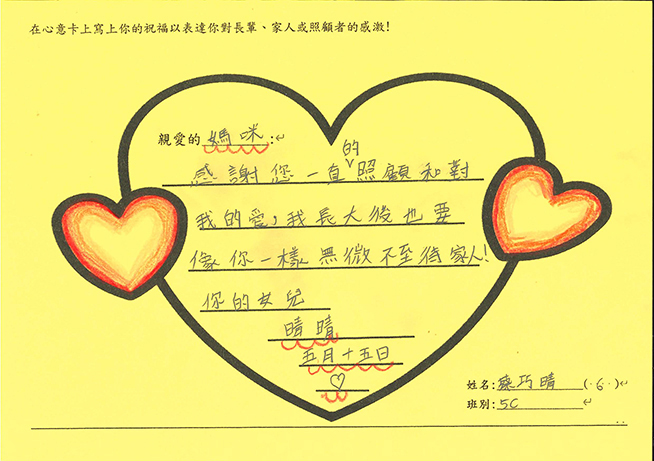 在心意卡上寫上你的祝福以表達你對長輩、家人或照顧者的感激!
親愛的 媽咪 :
感謝您一直的照顧和對
我的愛,我長大後也要
像你一樣無微不至待家人!
你的女兒
晴晴
五月十五日
姓名: 巧晴 (·6·)
班別: 5C